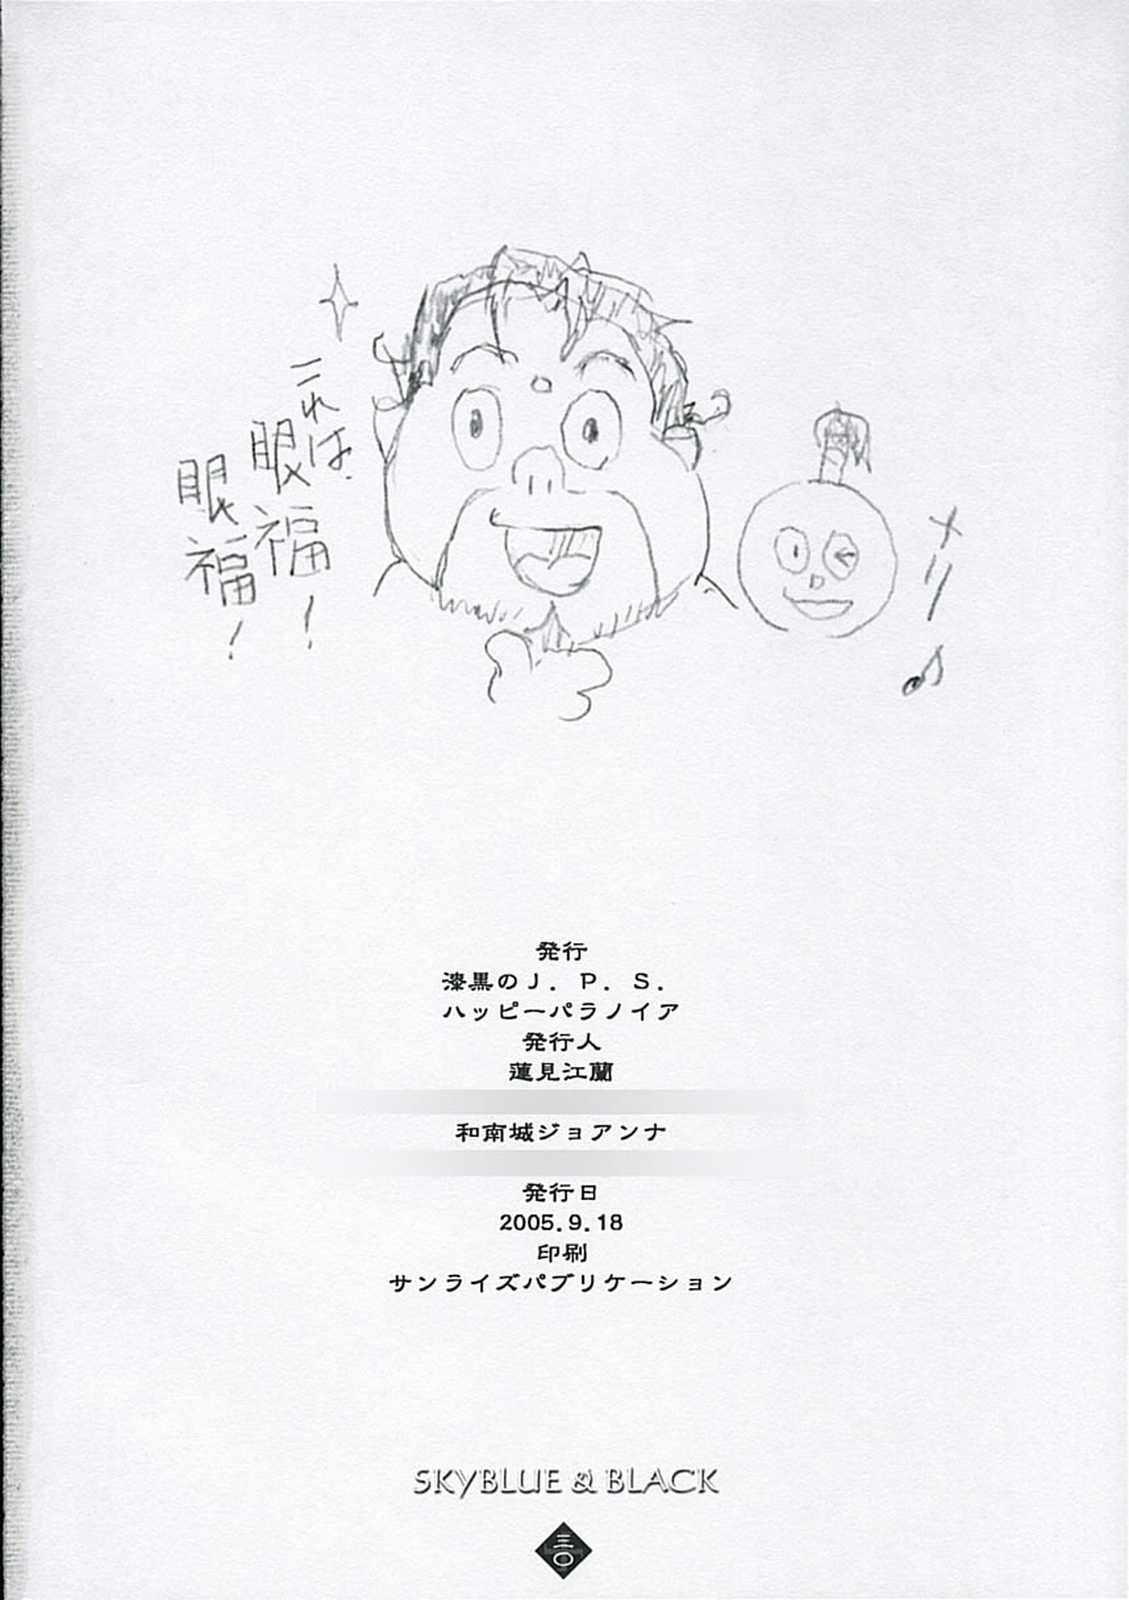 これは、
眼福！
眼福！
メリ♪
発行
漆黒のＪ．Ｐ．Ｓ．
ハッピーパラノイア
発行人
蓮見江蘭
和南城ジョアンナ
発行日
2005.9.18
印刷
サンライズパブリケーション
SKYBLUE & BLACK
三〇